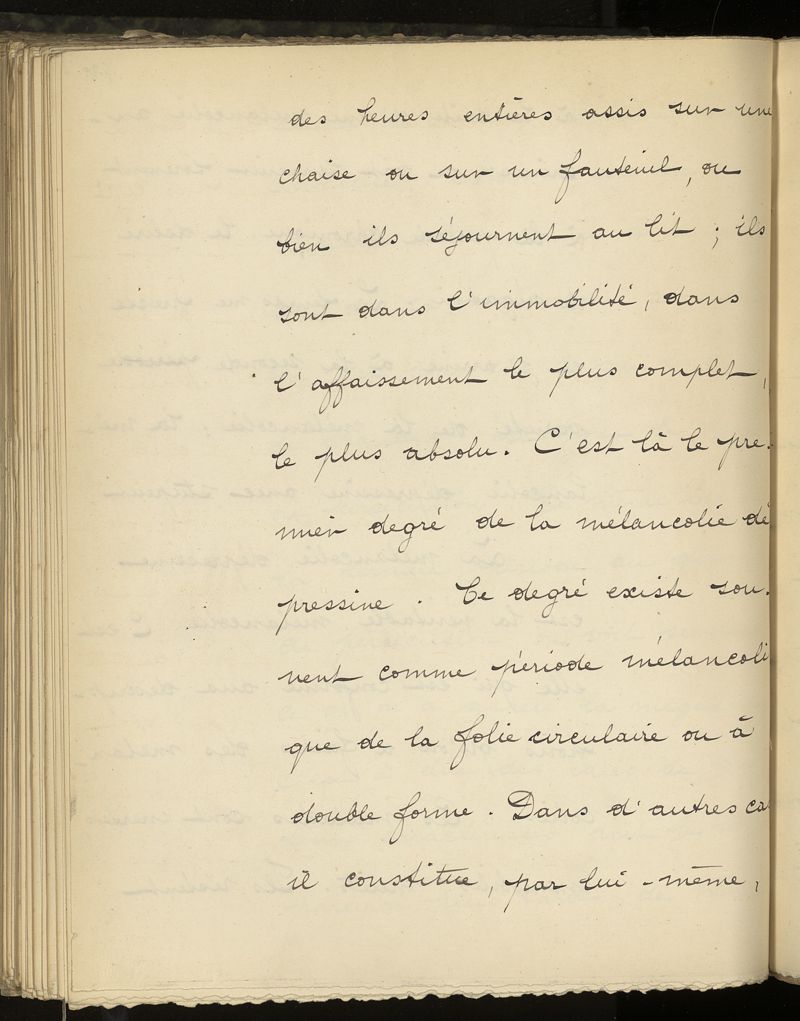 des heures entières assis sur une
chaise ou sur un fauteuil, ou
bien ils séjournent au lit ; ils
sont dans l'immobilité, dans
l'affaissement le plus complet,
le plus absolu. C'est là le pre-
mier degré de la mélancolie dé
pressive. Ce degré existe sou-
vent comme période mélancoli
que de la folie circulaire ou à
double forme. Dans d'autres ca
il constitue, par lui-même,